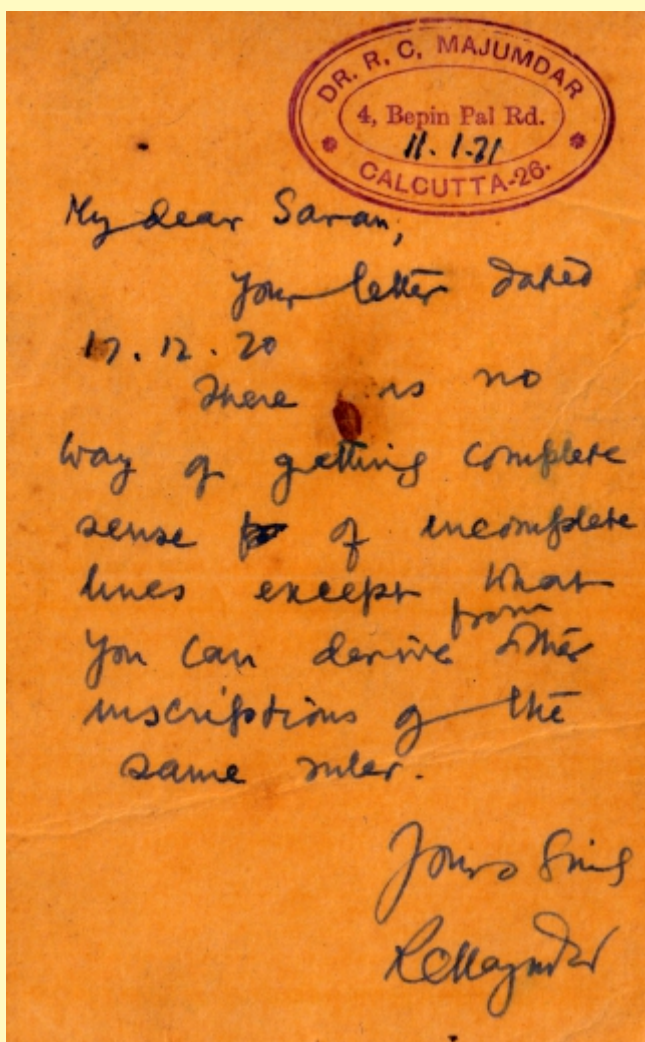 DR. R. C. MAJUMDAR
4, Bepin Pal Rd.
11.1.71
CALCUTTA-26.
My dear Saran,
Your letter dated
17.12.70
There is no
way of getting complete
sense of incomplete
lines except what
you can derive from other
inscriptions of the
same ruler.
Yours
RCMajumdar